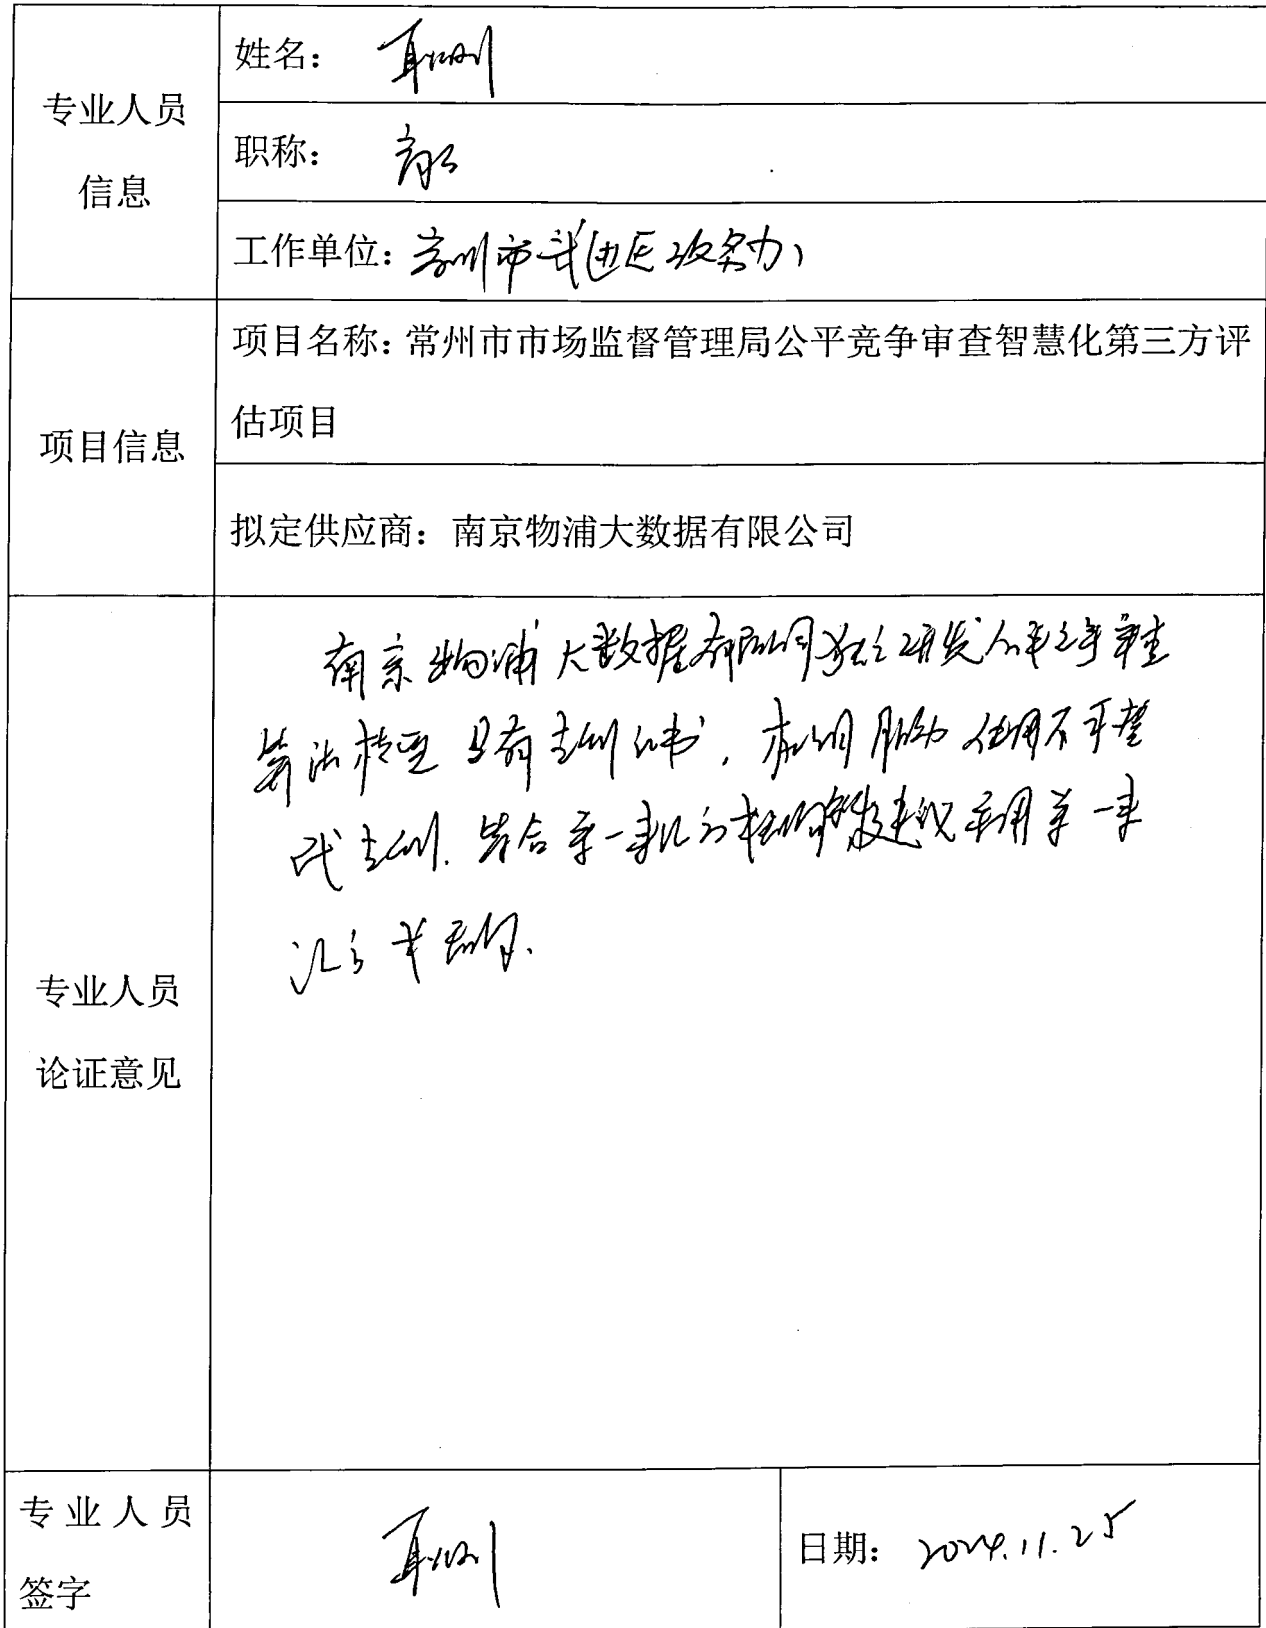 专业人员
信息
姓名：耿刚
职称：高工
工作单位：常州市武进区政务办
项目信息
项目名称：常州市市场监督管理局公平竞争审查智慧化第三方评
估项目
拟定供应商：南京物浦大数据有限公司
专业人员
论证意见
南京物浦大数据有限公司独立研发公平竞争审查
算法模型 具有专利证书，本项目服务使用不可替
代专利. 符合单一来源 建议采用单一来
源方式采购.
专业人员
签字
耿刚
日期：2024.11.25